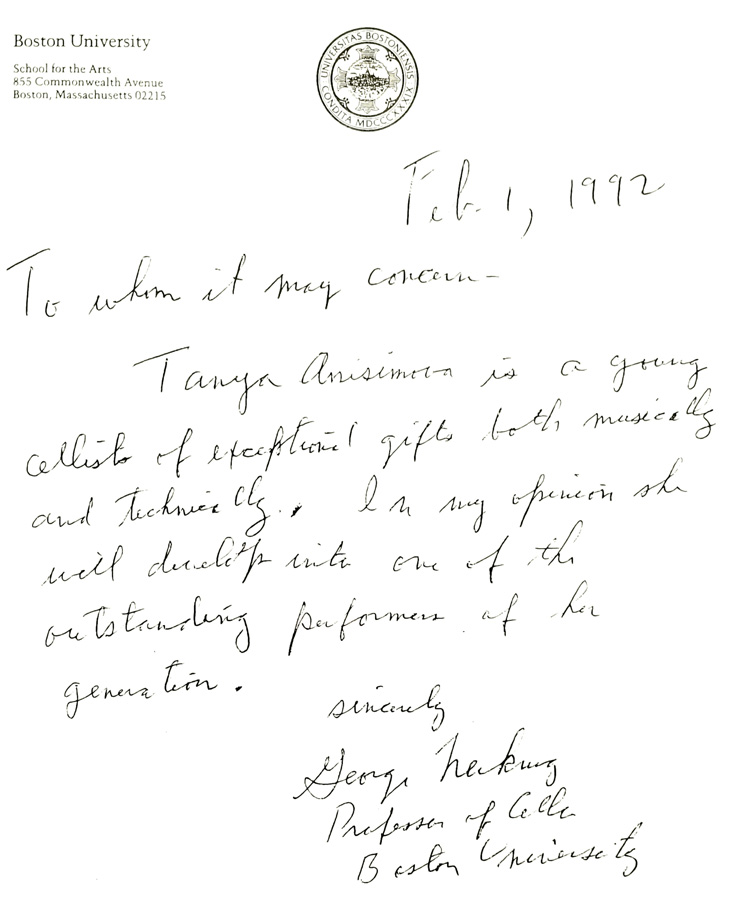 Boston University
School for the Arts
855 Commonwealth Avenue
Boston, Massachusetts 02215
UNIVERSITAS BOSTONIENSIS
CONDITA MDCCCXXXIX
Feb. 1, 1992
To whom it may concern-
Tanya Anisimova is a young
cellist of exceptional gifts both musically
and technically. In my opinion she
will develop into one of the
outstanding performers of her
generation.
sincerely
George Neikrug
Professor of Cello
Boston University